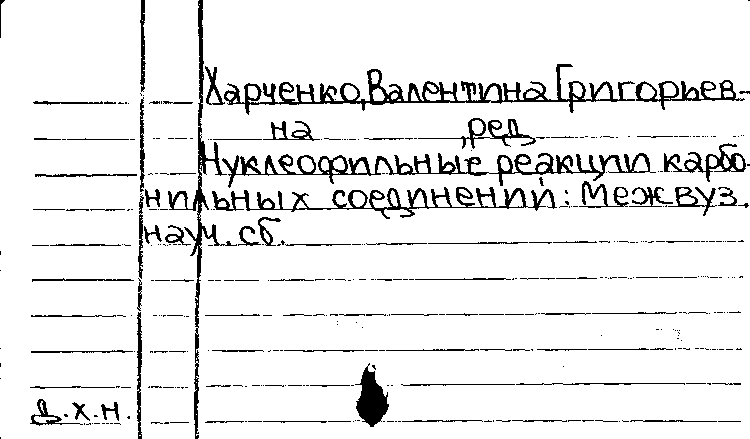 Харченко, Валентина Григорьев-
на ,ред
Нуклеофильные реакции карбо-
нильных соединений: Межвуз.
науч. сб.
д.х.н.